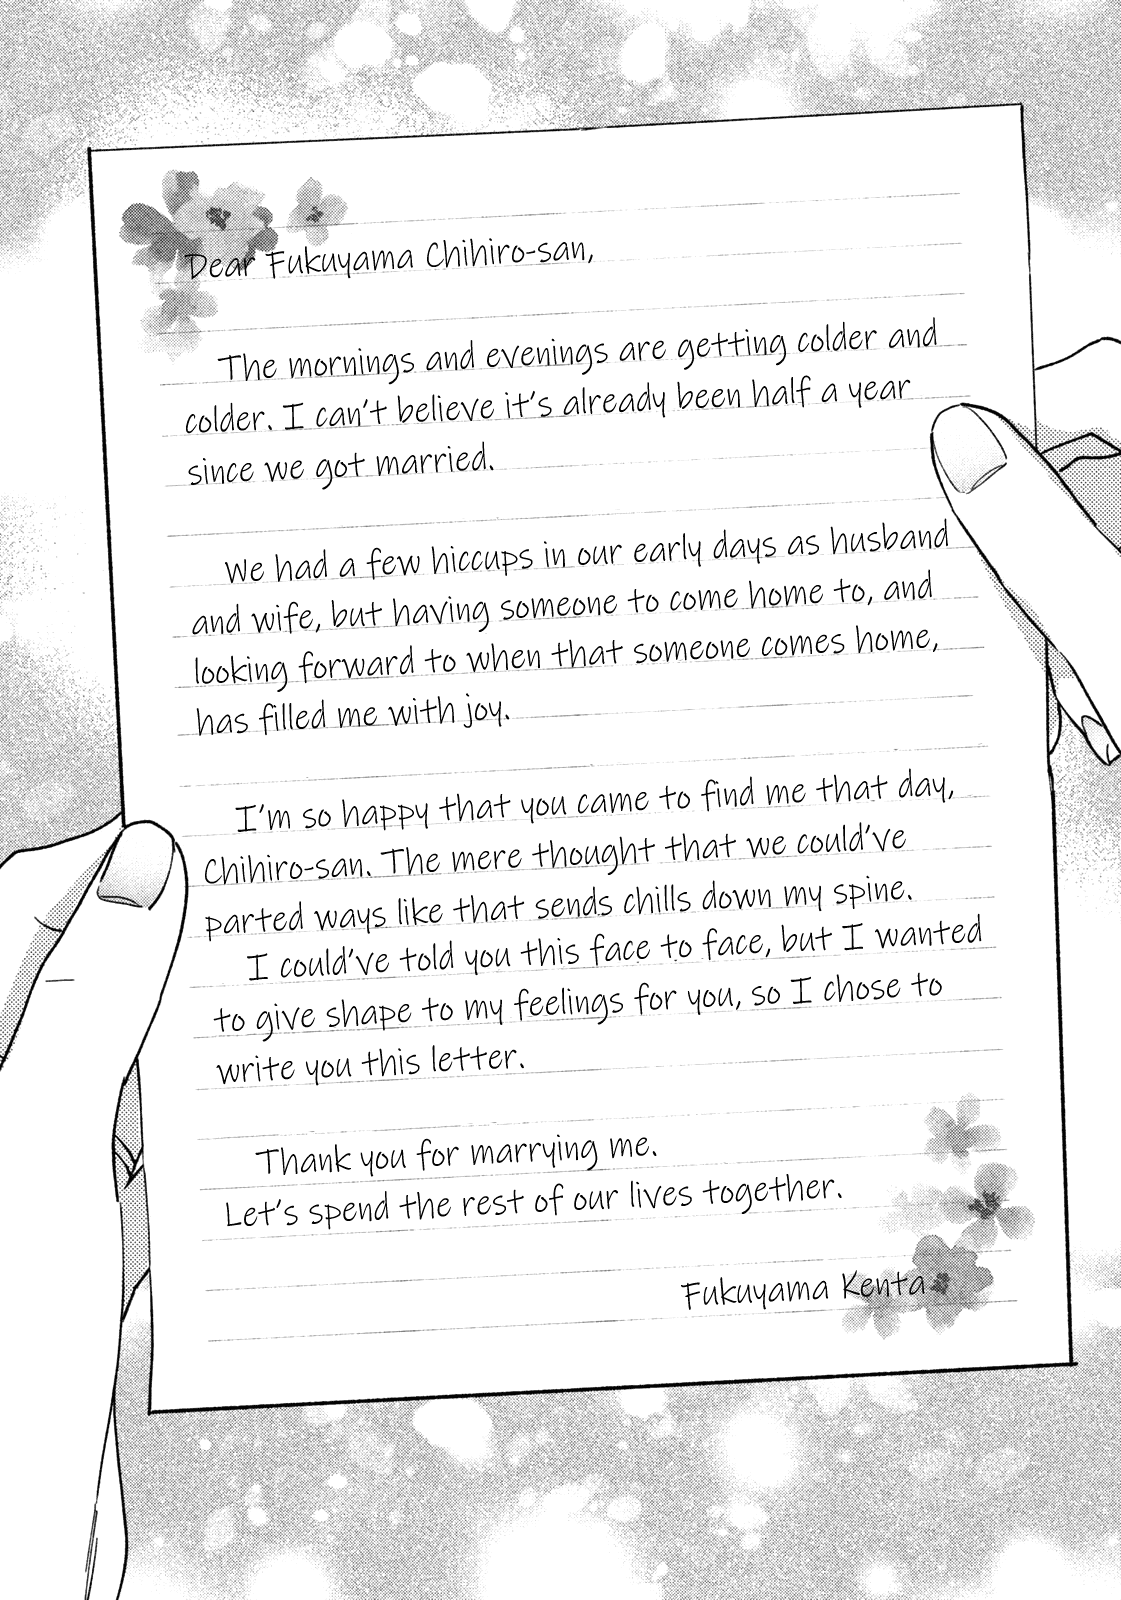 Dear Fukuyama Chihiro-san,
The mornings and evenings are getting colder and
colder. I can't believe it's already been half a year
since we got married.
We had a few hiccups in our early days as husband
and wife, but having someone to come home to, and
looking forward to when that someone comes home,
has filled me with joy.
I'm so happy that you came to find me that day,
Chihiro-san. The mere thought that we could've
parted ways like that sends chills down my spine.
I could've told you this face to face, but I wanted
to give shape to my feelings for you, so I chose to
write you this letter.
Thank you for marrying me.
Let's spend the rest of our lives together.
Fukuyama Kenta